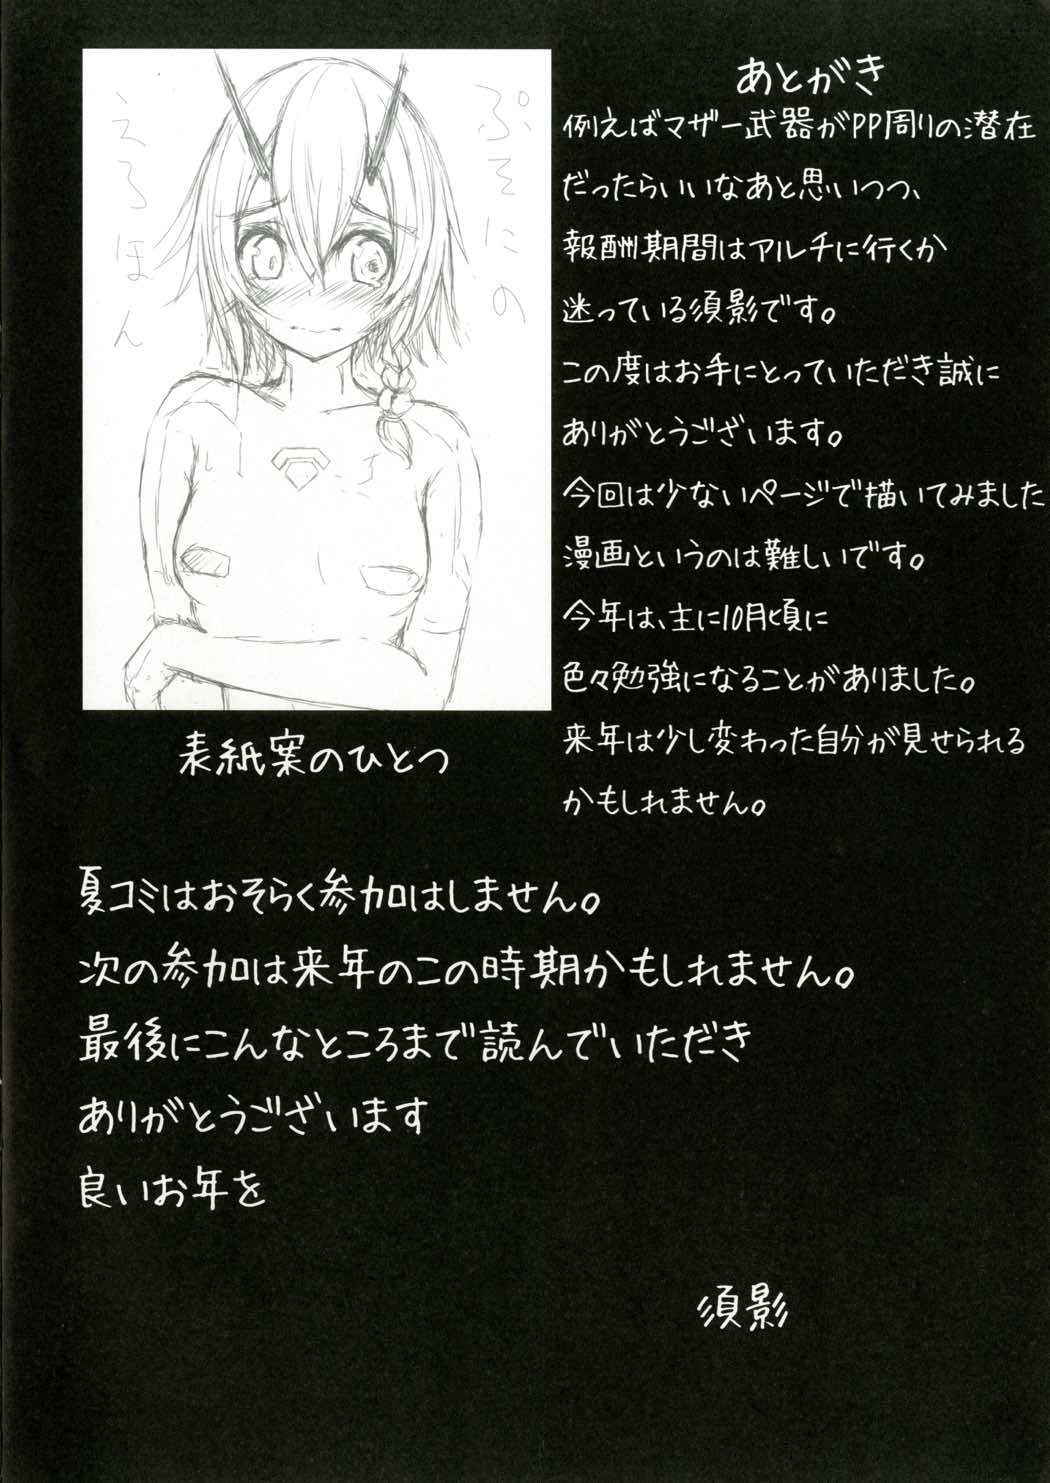 あとがき
例えばマザー武器がPP周りの潜在
だったらいいなあと思いつつ、
報酬期間はアルチに行くか
迷っている須影です。
この度はお手にとっていただき誠に
ありがとうございます。
今回は少ないページで描いてみました
漫画というのは難しいです。
今年は、主に10月頃に
色々勉強になることがありました。
来年は少し変わった自分が見せられる
かもしれません。
ぷそにの
えろほん
表紙案のひとつ
夏コミはおそらく参加はしません。
次の参加は来年のこの時期かもしれません。
最後にこんなところまで読んでいただき
ありがとうございます
良いお年を
須影